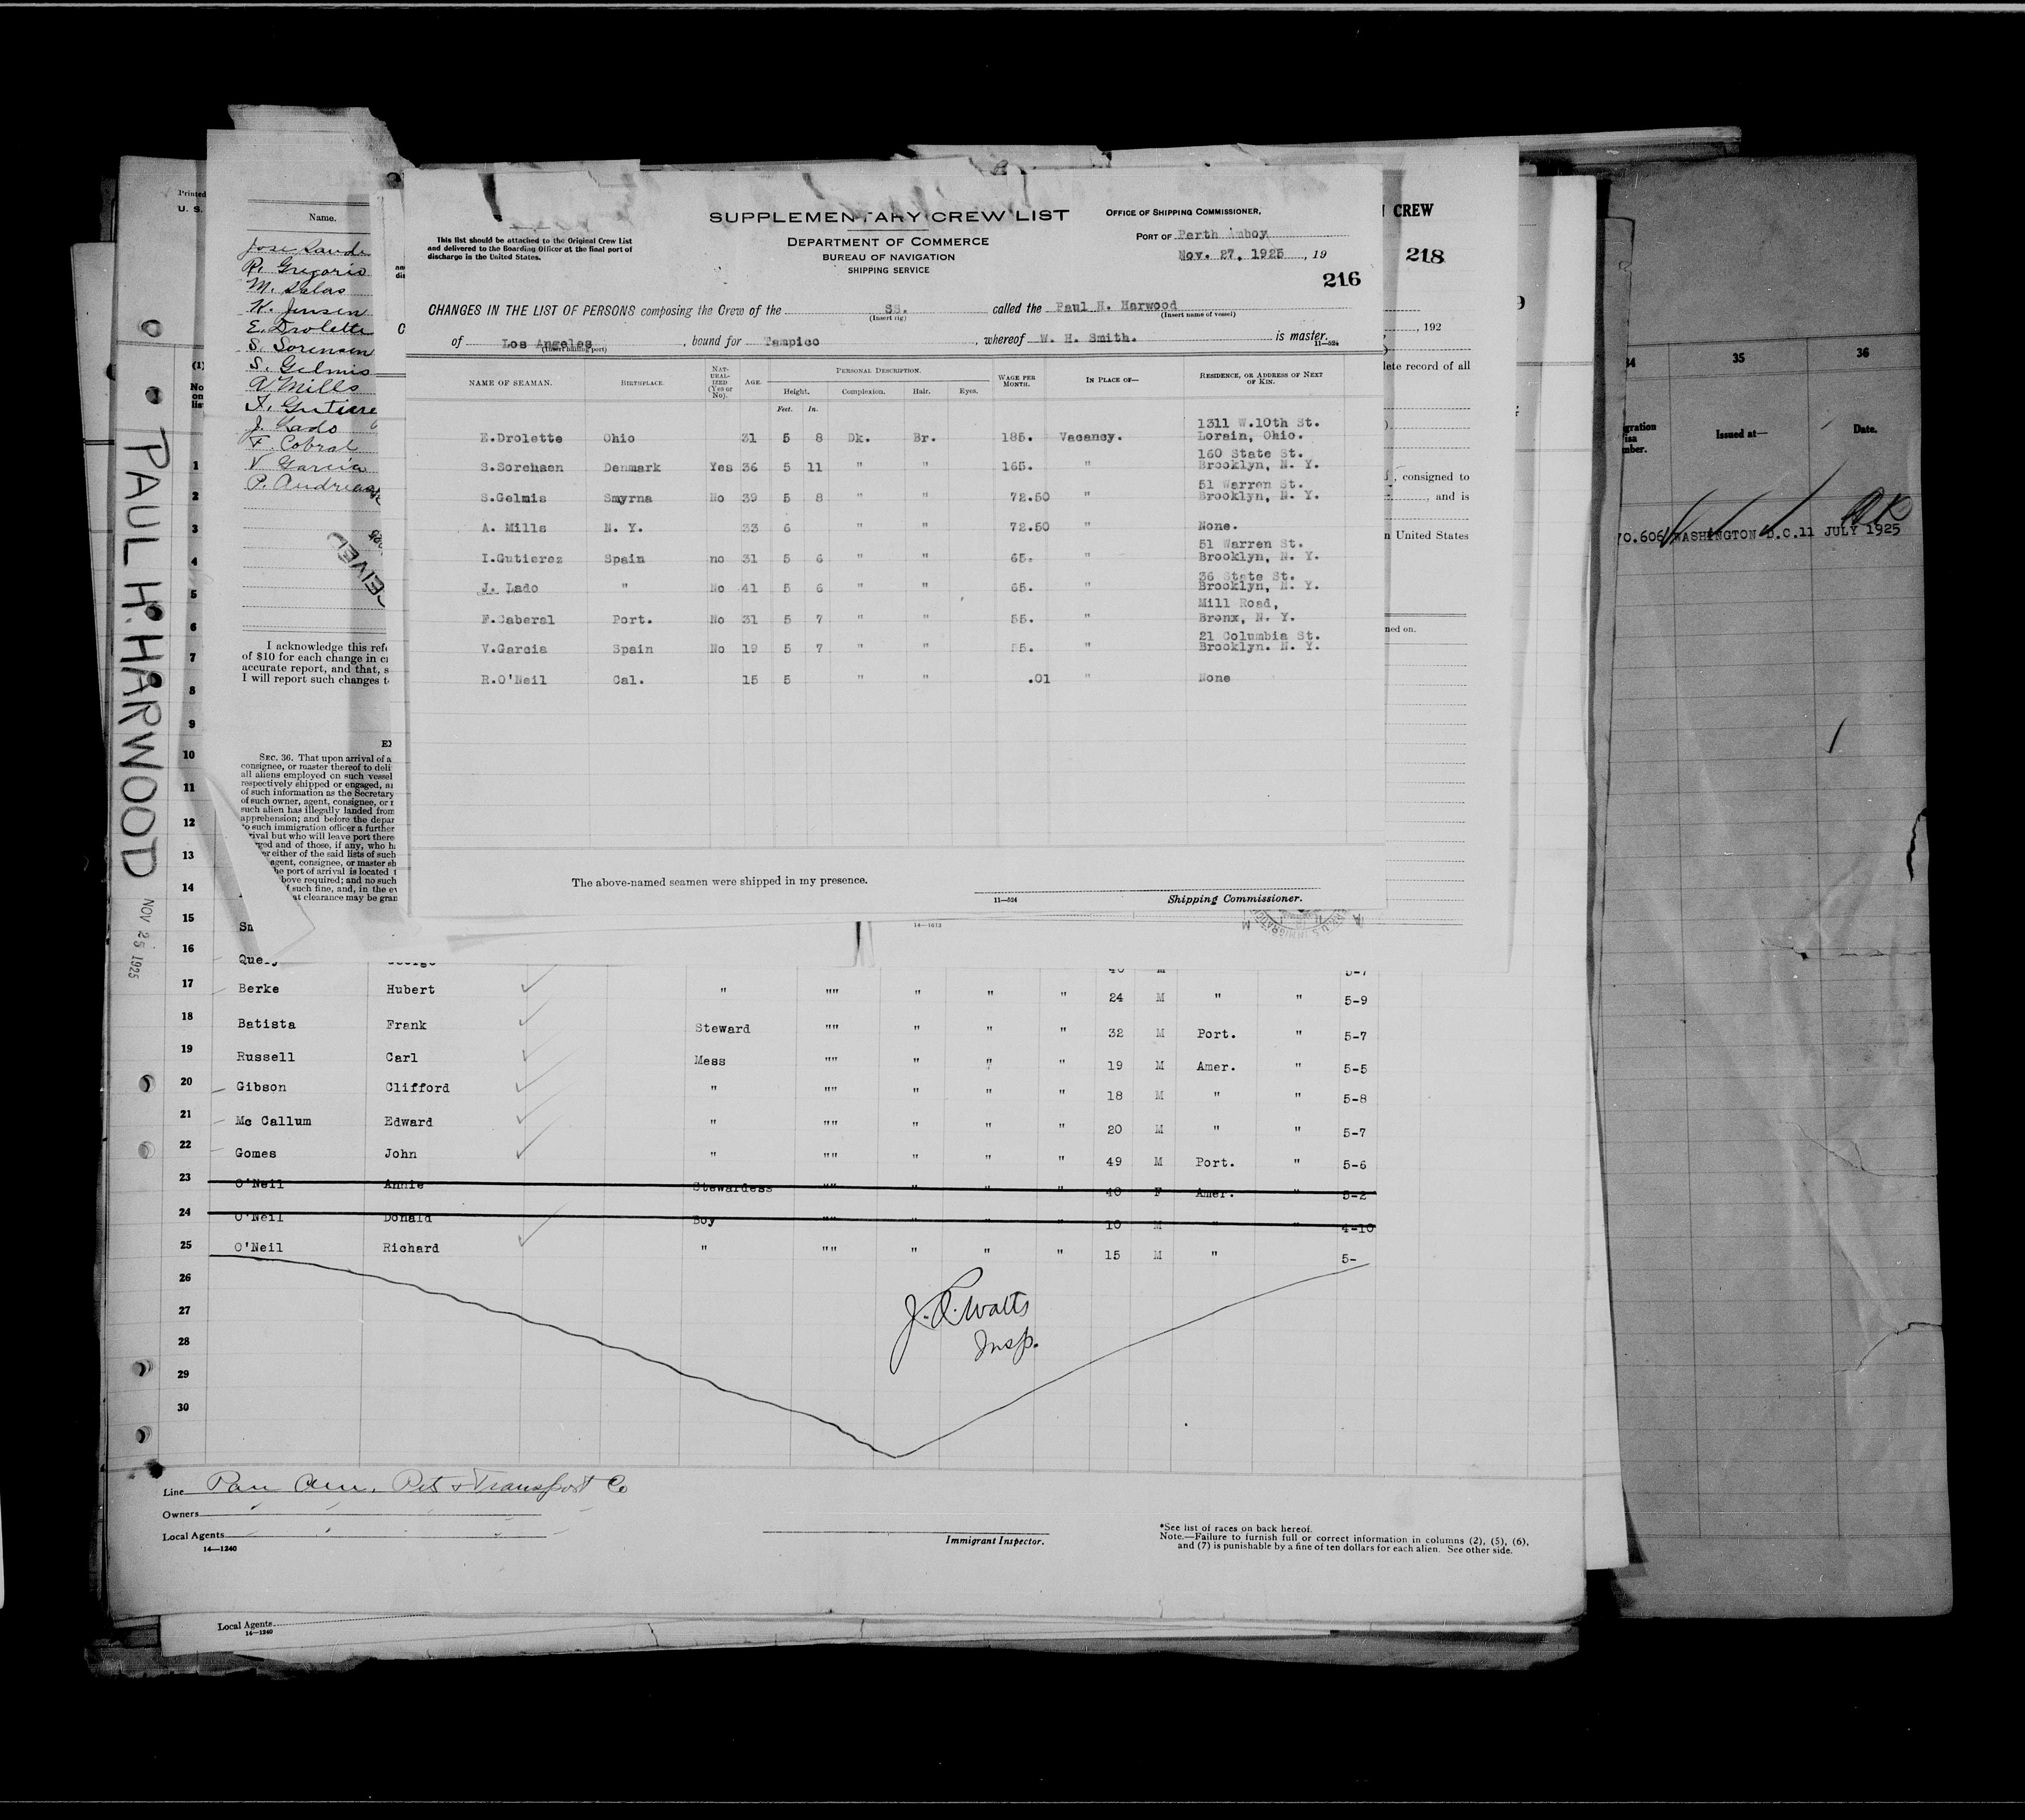 SUPPLEMENTARY CREW LIST
OFFICE OF SHIPPING COMMISSIONER,
This list should be attached to the Original Crew List
and delivered to the Boarding Officer at the final port of
discharge in the United States.
DEPARTMENT OF COMMERCE
BUREAU OF NAVIGATION
SHIPPING SERVICE
PORT OF Perth Amboy
Nov. 27, 1925, 19
216
CHANGES IN THE LIST OF PERSONS composing the Crew of the SS. called the Paul H. Harwood
(Insert rig) (Insert name of vessel)
of Los Angeles, bound for Tampico, whereof W. H. Smith. is master.
11—524
NAME OF SEAMAN. BIRTHPLACE. NAT-URAL-IZED (Yes or No). AGE. PERSONAL DESCRIPTION. WAGE PER MONTH. IN PLACE OF— RESIDENCE, OR ADDRESS OF NEXT OF KIN.
Height. Complexion. Hair. Eyes.
Feet. In.
1311 W.10th St.
E.Drolette Ohio 31 5 8 Dk. Br. 185. Vacancy. Lorain, Ohio.
160 State St.
S.Sorensen Denmark Yes 36 5 11 " " 165. " Brooklyn, N. Y.
51 Warren St.
S.Gelmis Smyrna No 39 5 8 " " 72.50 " Brooklyn, N. Y.
A. Mills N. Y. 33 6 " " 72.50 " None.
51 Warren St.
I.Gutierez Spain no 31 5 6 " " 65. " Brooklyn, N. Y.
36 State St.
J. Lado " No 41 5 6 " " 65. " Brooklyn, N. Y.
Mill Road,
F.Caberal Port. No 31 5 7 " " 55. " Bronx, N. Y.
21 Columbia St.
V.Garcia Spain No 19 5 7 " " 55. " Brooklyn. N. Y.
R.O'Neil Cal. 15 5 " " .01 " None
The above-named seamen were shipped in my presence.
11—524 Shipping Commissioner.
Printed
U. S.
Name.
R. Gregorio
M. Salas
K. Jensen
E. Drolette
S. Sorensen
S. Gelmis
A. Mills
J. Lado
F. Cobral
V Garcia
I acknowledge this
of $10 for each change in
accurate report, and that,
I will report such changes
SEC. 36. That upon arrival of a
consignee, or master thereof to
all aliens employed on such vessel
respectively shipped or engaged,
of such information as the Secretary
of such owner, agent, consignee, or
such alien has illegally landed from
apprehension; and before the
to such immigration officer a further
but who will leave port
and of those, if any, who
either of the said lists of such
agent, consignee, or master
port of arrival is located
required; and no such
such fine, and, in the
clearance may be
CREW
218
, 192
record of all
, consigned to
, and is
United States
35 36
Issued at— Date.
WASHINGTON D.C.11 JULY 1925
PAUL H. HARWOOD
NOV 25 1925
(1)
No
on
1
2
3
4
5
6
7
8
9
10
11
12
13
14
15
16
14—1613
17 Berke Hubert " "" " " " 24 M " " 5-9
18 Batista Frank Steward "" " " " 32 M Port. " 5-7
19 Russell Carl Mess "" " " " 19 M Amer. " 5-5
20 Gibson Clifford " "" " " " 18 M " " 5-8
21 Mc Callum Edward " "" " " " 20 M " " 5-7
22 Gomes John " "" " " " 49 M Port. " 5-6
23 O'Neil Annie Stewardess "" " " " 40 F Amer. " 5-2
24 O'Neil Donald Boy "" " " " 10 M " " 4-10
25 O'Neil Richard " "" " " " 15 M " 5-
26
27
28
29
30
Insp.
Line Pan Am. Pet & Transport Co
Owners
Local Agents
14—1240
Immigrant Inspector.
*See list of races on back hereof.
Note.—Failure to furnish full or correct information in columns (2), (5), (6),
and (7) is punishable by a fine of ten dollars for each alien. See other side.
Local Agents
14—1240